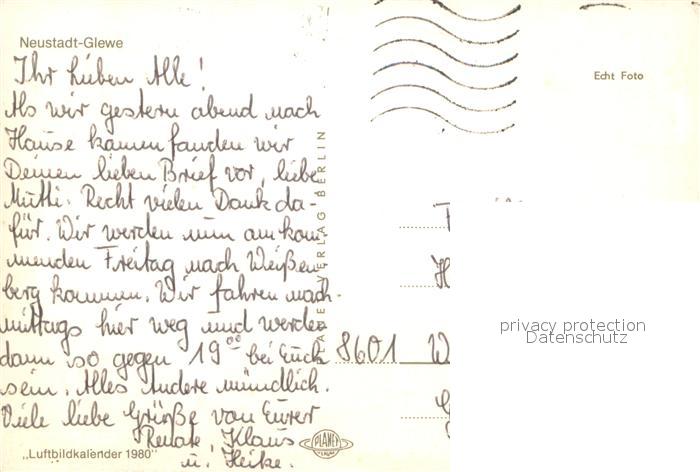 Neustadt-Glewe
Ihr lieben Alle!
Als wir gestern abend nach
Hause kamen fanden wir
Deinen lieben Brief vor, liebe
Mutti. Recht vielen Dank da-
für. Wir werden nun am kom-
menden Freitag nach Weißen-
berg kommen. Wir fahren nach-
mittags hier weg und werden
dann so gegen 19⁰⁰ bei Euch
sein. Alles Andere mündlich.
Viele liebe Grüße von Eurer
Renate Klaus
u. Heike.
"Luftbildkalender 1980"
VERLAG BERLIN
PLANET
Echt Foto
8601 W
privacy protection
Datenschutz